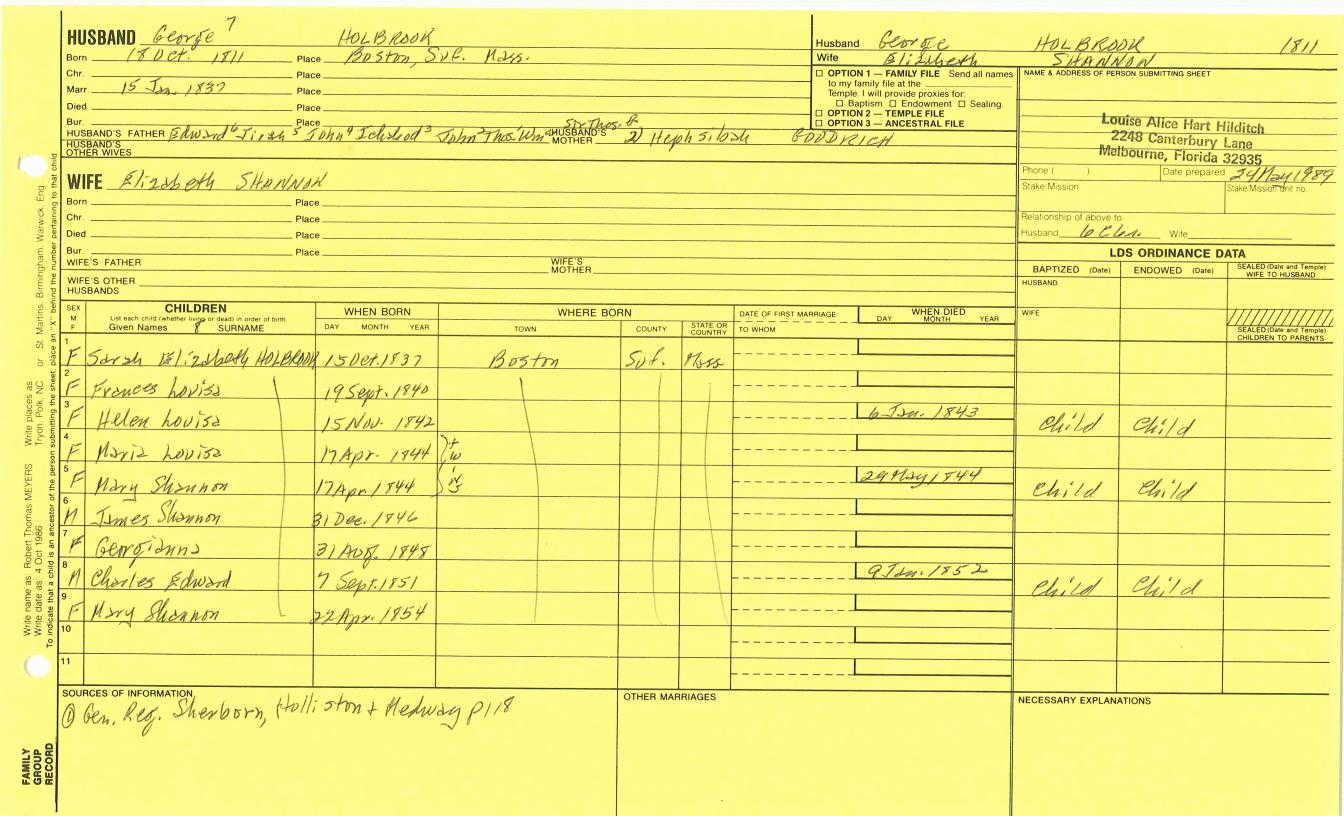 HUSBAND George 7 HOLBROOK
Born 18 Oct. 1811 Place Boston, Suf. Mass.
Chr. Place
Marr 15 Jan. 1837 Place
Died Place
Bur. Place
HUSBAND'S FATHER Edward 6 John 4 Ichabod 3 John 2 Thos. Wm HUSBAND'S MOTHER 2) Hephsibah GOODRICH
HUSBAND'S OTHER WIVES
WIFE Elizabeth SHANNON
Born Place
Chr. Place
Died Place
Bur. Place
WIFE'S FATHER WIFE'S MOTHER
WIFE'S OTHER HUSBANDS
Husband George HOLBROOK 1811
Wife Elizabeth SHANNON
☐ OPTION 1 — FAMILY FILE Send all names
to my family file at the
Temple. I will provide proxies for:
☐ Baptism ☐ Endowment ☐ Sealing.
☐ OPTION 2 — TEMPLE FILE
☐ OPTION 3 — ANCESTRAL FILE
NAME & ADDRESS OF PERSON SUBMITTING SHEET
Louise Alice Hart Hilditch
2248 Canterbury Lane
Melbourne, Florida 32935
Phone ( ) Date prepared 24 May 1989
Stake/Mission Stake/Mission unit no.
Relationship of above to:
Husband 6C Wife
LDS ORDINANCE DATA
BAPTIZED (Date) ENDOWED (Date) SEALED (Date and Temple) WIFE TO HUSBAND
HUSBAND
WIFE
SEALED (Date and Temple) CHILDREN TO PARENTS
SEX M F
CHILDREN
List each child (whether living or dead) in order of birth.
Given Names 8 SURNAME
WHEN BORN
DAY MONTH YEAR
WHERE BORN
TOWN COUNTY STATE OR COUNTRY
DATE OF FIRST MARRIAGE
TO WHOM
WHEN DIED
DAY MONTH YEAR
1 F Sarah Elizabeth HOLBROOK 15 Oct. 1837 Boston Suf. Mass
2 F Frances Louisa 19 Sept. 1840
3 F Helen Louisa 15 Nov. 1842 6 Jan. 1843 Child Child
4 F Maria Louisa 17 Apr. 1844 } tw
5 F Mary Shannon 17 Apr. 1844 } ins 29 May 1844 Child Child
6 M James Shannon 31 Dec. 1846
7 F Georgianna 31 Aug. 1848
8 M Charles Edward 7 Sept. 1851 9 Jan. 1852 Child Child
9 F Mary Shannon 22 Apr. 1854
10
11
SOURCES OF INFORMATION
① Gen. Reg. Sherborn, Holliston & Medway p118
OTHER MARRIAGES
NECESSARY EXPLANATIONS
Write name as Robert Thomas MEYERS Write places as Tryon, Polk, NC or St. Martins, Birmingham, Warwick, Eng.
Write date as 4 Oct 1986
To indicate that a child is an ancestor of the person submitting the sheet, place an "X" behind the number pertaining to that child
FAMILY
GROUP
RECORD